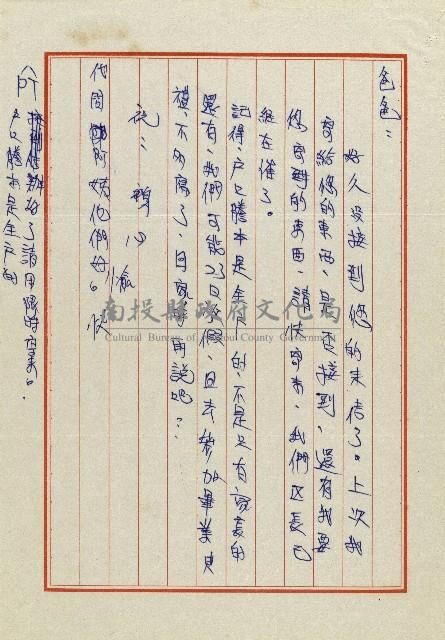 爸爸：
好久沒接到您的來信了。上次我
寄給您的東西，是否接到，還有我要
您寄到的東西，請快寄來，我們区長已
經在催了。
記得，戶口謄本是全戶的，不是只有家長的
還有，我們可能23日放假，回去參加畢業典
禮，不多寫了，回家再說吧！
祝：
心愉
代問阿姨他們好。
接到信辦好了請用限時寄來。
戶口謄本是全戶的
南投縣政府文化局
Cultural Bureau of Nantou County Government